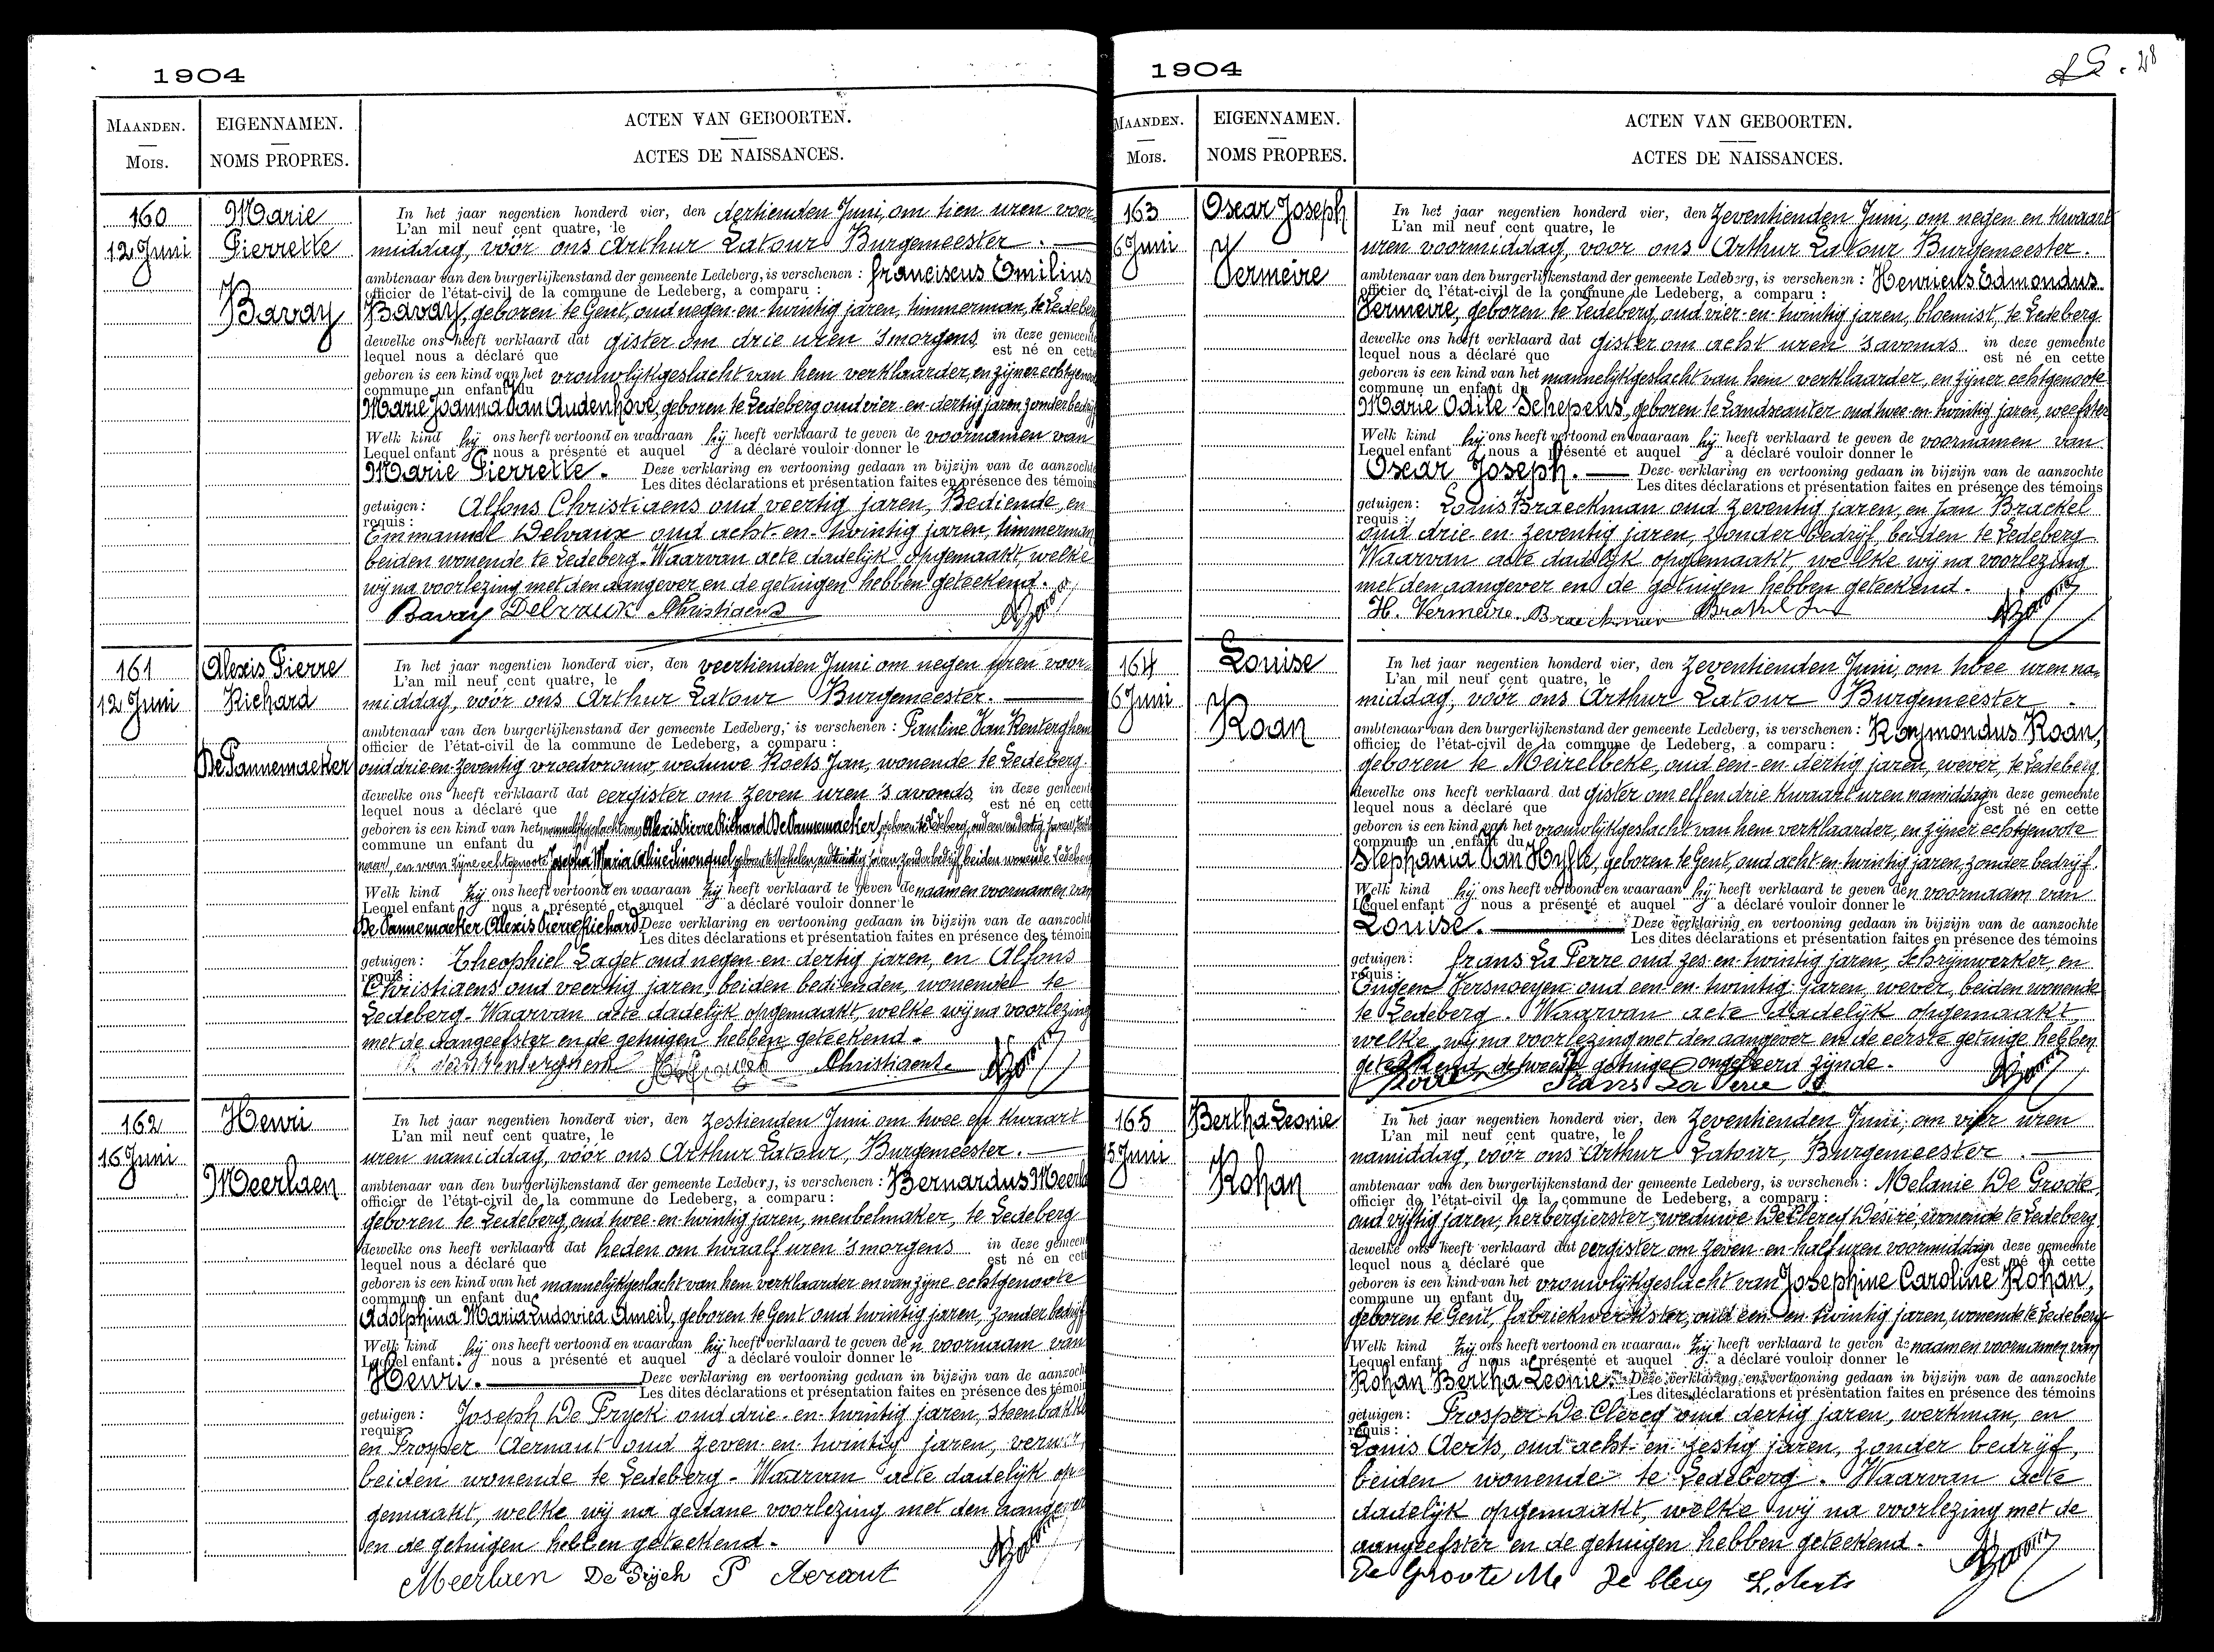 1904
MAANDEN.
Mois.
EIGENNAMEN.
NOMS PROPRES.
ACTEN VAN GEBOORTEN.
ACTES DE NAISSANCES.
160
12 Juni
Marie
Pierrette
Bavay
In het jaar negentien honderd vier, den dertienden Juni, om tien uren voor-
L'an mil neuf cent quatre, le
middag, vóór ons Arthur Latour Burgemeester.
ambtenaar van den burgerlijkenstand der gemeente Ledeberg, is verschenen : Franciscus Emilius
officier de l'état-civil de la commune de Ledeberg, a comparu :
Bavay, geboren te Gent, oud negen-en-twintig jaren, timmerman, te Ledeberg
dewelke ons heeft verklaard dat gister om drie uren 's morgens in deze gemeente
lequel nous a déclaré que est né en cette
geboren is een kind van het vrouwlijkgeslacht van hem verklaarder, en zijner echtgenoote
commune un enfant du
Marie Joanna Van Audenhove, geboren te Ledeberg oud vier-en-dertig jaren zonder bedrijf
Welk kind hij ons heeft vertoond en waaraan hij heeft verklaard te geven de voornamen van
Lequel enfant nous a présenté et auquel a déclaré vouloir donner le
Marie Pierrette. Deze verklaring en vertooning gedaan in bijzijn van de aanzochte
Les dites déclarations et présentation faites en présence des témoins
getuigen: Alfons Christiaens oud veertig jaren, Bediende, en
requis :
Emmanuel Delvaux oud acht-en-twintig jaren, timmerman
beiden wonende te Ledeberg. Waarvan acte dadelijk opgemaakt, welke
wij na voorlezing met den aangever en de getuigen hebben geteekend.
Bavay Delvaux Christiaens
161
12 Juni
Alexis Pierre
Richard
De Pannemaeker
In het jaar negentien honderd vier, den veertienden Juni om negen uren voor-
L'an mil neuf cent quatre, le
middag, vóór ons Arthur Latour Burgemeester.
ambtenaar van den burgerlijkenstand der gemeente Ledeberg, is verschenen : Pauline Van Renterghem
officier de l'état-civil de la commune de Ledeberg, a comparu :
oud drie-en-zeventig vroedvrouw, weduwe Roets Jan, wonende te Ledeberg
dewelke ons heeft verklaard dat eergister om zeven uren 's avonds in deze gemeente
lequel nous a déclaré que est né en cette
geboren is een kind van het mannelijkgeslacht van Alexis Pierre Richard De Pannemaeker, geboren te Ledeberg, oud
commune un enfant du
en van zijne echtgenoote Josepha Maria Alice geboren te jaren, zonder bedrijf, beiden wonende Ledeberg
Welk kind zij ons heeft vertoond en waaraan zij heeft verklaard te geven de naam en voornamen van
Lequel enfant nous a présenté et auquel a déclaré vouloir donner le
De Pannemaeker Alexis Pierre Richard Deze verklaring en vertooning gedaan in bijzijn van de aanzochte
Les dites déclarations et présentation faites en présence des témoins
getuigen: Theophiel Laget oud negen-en-dertig jaren, en Alfons
requis :
Christiaens oud veertig jaren, beiden bedienden, wonende te
Ledeberg. Waarvan acte dadelijk opgemaakt, welke wij na voorlezing
met de aangeefster en de getuigen hebben geteekend.
Christiaens
162
16 Juni
Henri
Meerlaen
In het jaar negentien honderd vier, den zestienden Juni om twee en kwaart
L'an mil neuf cent quatre, le
uren namiddag, vóór ons Arthur Latour, Burgemeester.
ambtenaar van den burgerlijkenstand der gemeente Ledeberg, is verschenen : Bernardus Meerlaen
officier de l'état-civil de la commune de Ledeberg, a comparu :
geboren te Ledeberg, oud twee-en-twintig jaren, meubelmaker, te Ledeberg
dewelke ons heeft verklaard dat heden om twaalf uren 's morgens in deze gemeente
lequel nous a déclaré que est né en cette
geboren is een kind van het mannelijkgeslacht van hem verklaarder en van zijne echtgenoote
commune un enfant du
Adolphina Maria Ludovica Ameil, geboren te Gent oud twintig jaren, zonder bedrijf
Welk kind hij ons heeft vertoond en waaraan hij heeft verklaard te geven den voornaam van
Lequel enfant nous a présenté et auquel a déclaré vouloir donner le
Henri. Deze verklaring en vertooning gedaan in bijzijn van de aanzochte
Les dites déclarations et présentation faites en présence des témoins
getuigen: Joseph De Pryck oud drie-en-twintig jaren, steenbakker
requis :
en Prosper Aernaut oud zeven-en-twintig jaren, verwer,
beiden wonende te Ledeberg. Waarvan acte dadelijk op-
gemaakt, welke wij na gedane voorlezing met den aangever
en de getuigen hebben geteekend.
Meerlaen De Pryck P Aernaut
1904
28
MAANDEN.
Mois.
EIGENNAMEN.
NOMS PROPRES.
ACTEN VAN GEBOORTEN.
ACTES DE NAISSANCES.
163
6 Juni
Oscar Joseph
Vermeire
In het jaar negentien honderd vier, den zeventienden Juni, om negen en kwaart
L'an mil neuf cent quatre, le
uren voormiddag, voor ons Arthur Latour Burgemeester.
ambtenaar van den burgerlijkenstand der gemeente Ledeberg, is verschenen : Henricus Edmondus
officier de l'état-civil de la commune de Ledeberg, a comparu :
Vermeire, geboren te Ledeberg, oud vier-en-twintig jaren, bloemist, te Ledeberg
dewelke ons heeft verklaard dat gister om acht uren 's avonds in deze gemeente
lequel nous a déclaré que est né en cette
geboren is een kind van het mannelijkgeslacht van hem verklaarder, en zijner echtgenoote
commune un enfant du
Marie Odile Schepens, geboren te Landscauter oud twee-en-twintig jaren, weefster
Welk kind hij ons heeft vertoond en waaraan hij heeft verklaard te geven de voornamen van
Lequel enfant nous a présenté et auquel a déclaré vouloir donner le
Oscar Joseph. Deze verklaring en vertooning gedaan in bijzijn van de aanzochte
Les dites déclarations et présentation faites en présence des témoins
getuigen: Louis Braeckman oud zeventig jaren, en Jan Brackel
requis :
oud drie-en-zeventig jaren, zonder bedrijf, beiden te Ledeberg
Waarvan acte dadelijk opgemaakt, welke wij na voorlezing
met den aangever en de getuigen hebben geteekend.
H. Vermeire. Braeckman
164
6 Juni
Louise
Roan
In het jaar negentien honderd vier, den zeventienden Juni, om twee uren na-
L'an mil neuf cent quatre, le
middag, vóór ons Arthur Latour Burgemeester.
ambtenaar van den burgerlijkenstand der gemeente Ledeberg, is verschenen : Raymondus Roan,
officier de l'état-civil de la commune de Ledeberg, a comparu :
geboren te Meirelbeke, oud een-en-dertig jaren, wever, te Ledeberg
dewelke ons heeft verklaard dat gister om elf en drie kwaart uren namiddag in deze gemeente
lequel nous a déclaré que est né en cette
geboren is een kind van het vrouwlijkgeslacht van hem verklaarder, en zijner echtgenoote
commune un enfant du
Stephania Van Hyfte, geboren te Gent, oud acht-en-twintig jaren, zonder bedrijf
Welk kind hij ons heeft vertoond en waaraan hij heeft verklaard te geven den voornaam van
Lequel enfant nous a présenté et auquel a déclaré vouloir donner le
Louise. Deze verklaring en vertooning gedaan in bijzijn van de aanzochte
Les dites déclarations et présentation faites en présence des témoins
getuigen: Frans La Perre oud zes-en-twintig jaren, schrijnwerker, en
requis :
Eugeen Versnoeyen oud een-en-twintig jaren, wever, beiden wonende
te Ledeberg. Waarvan acte dadelijk opgemaakt
welke wij na voorlezing met den aangever en de eerste getuige hebben
geteekend de tweede getuige ongeleerd zijnde.
Frans La Perre
165
15 Juni
Bertha Leonie
Rohan
In het jaar negentien honderd vier, den zeventienden Juni, om vier uren
L'an mil neuf cent quatre, le
namiddag, vóór ons Arthur Latour, Burgemeester.
ambtenaar van den burgerlijkenstand der gemeente Ledeberg, is verschenen : Melanie De Groote,
officier de l'état-civil de la commune de Ledeberg, a comparu :
oud vijftig jaren, herbergierster, weduwe De Clercq Desiré wonende te Ledeberg
dewelke ons heeft verklaard dat eergister om zeven-en-half uren voormiddag in deze gemeente
lequel nous a déclaré que est né en cette
geboren is een kind van het vrouwlijkgeslacht van Josephine Caroline Rohan,
commune un enfant du
geboren te Gent, fabriekwerkster, oud een-en-twintig jaren, wonende te Ledeberg
Welk kind zij ons heeft vertoond en waaraan zij heeft verklaard te geven de naam en voornamen van
Lequel enfant nous a présenté et auquel a déclaré vouloir donner le
Rohan Bertha Leonie. Deze verklaring en vertooning gedaan in bijzijn van de aanzochte
Les dites déclarations et présentation faites en présence des témoins
getuigen: Prosper De Clercq oud dertig jaren, werkman, en
requis :
Louis Aerts, oud acht-en-zestig jaren, zonder bedrijf,
beiden wonende te Ledeberg. Waarvan acte
dadelijk opgemaakt, welke wij na voorlezing met de
aangeefster en de getuigen hebben geteekend.
De Groote Me De Clercq L. Aerts